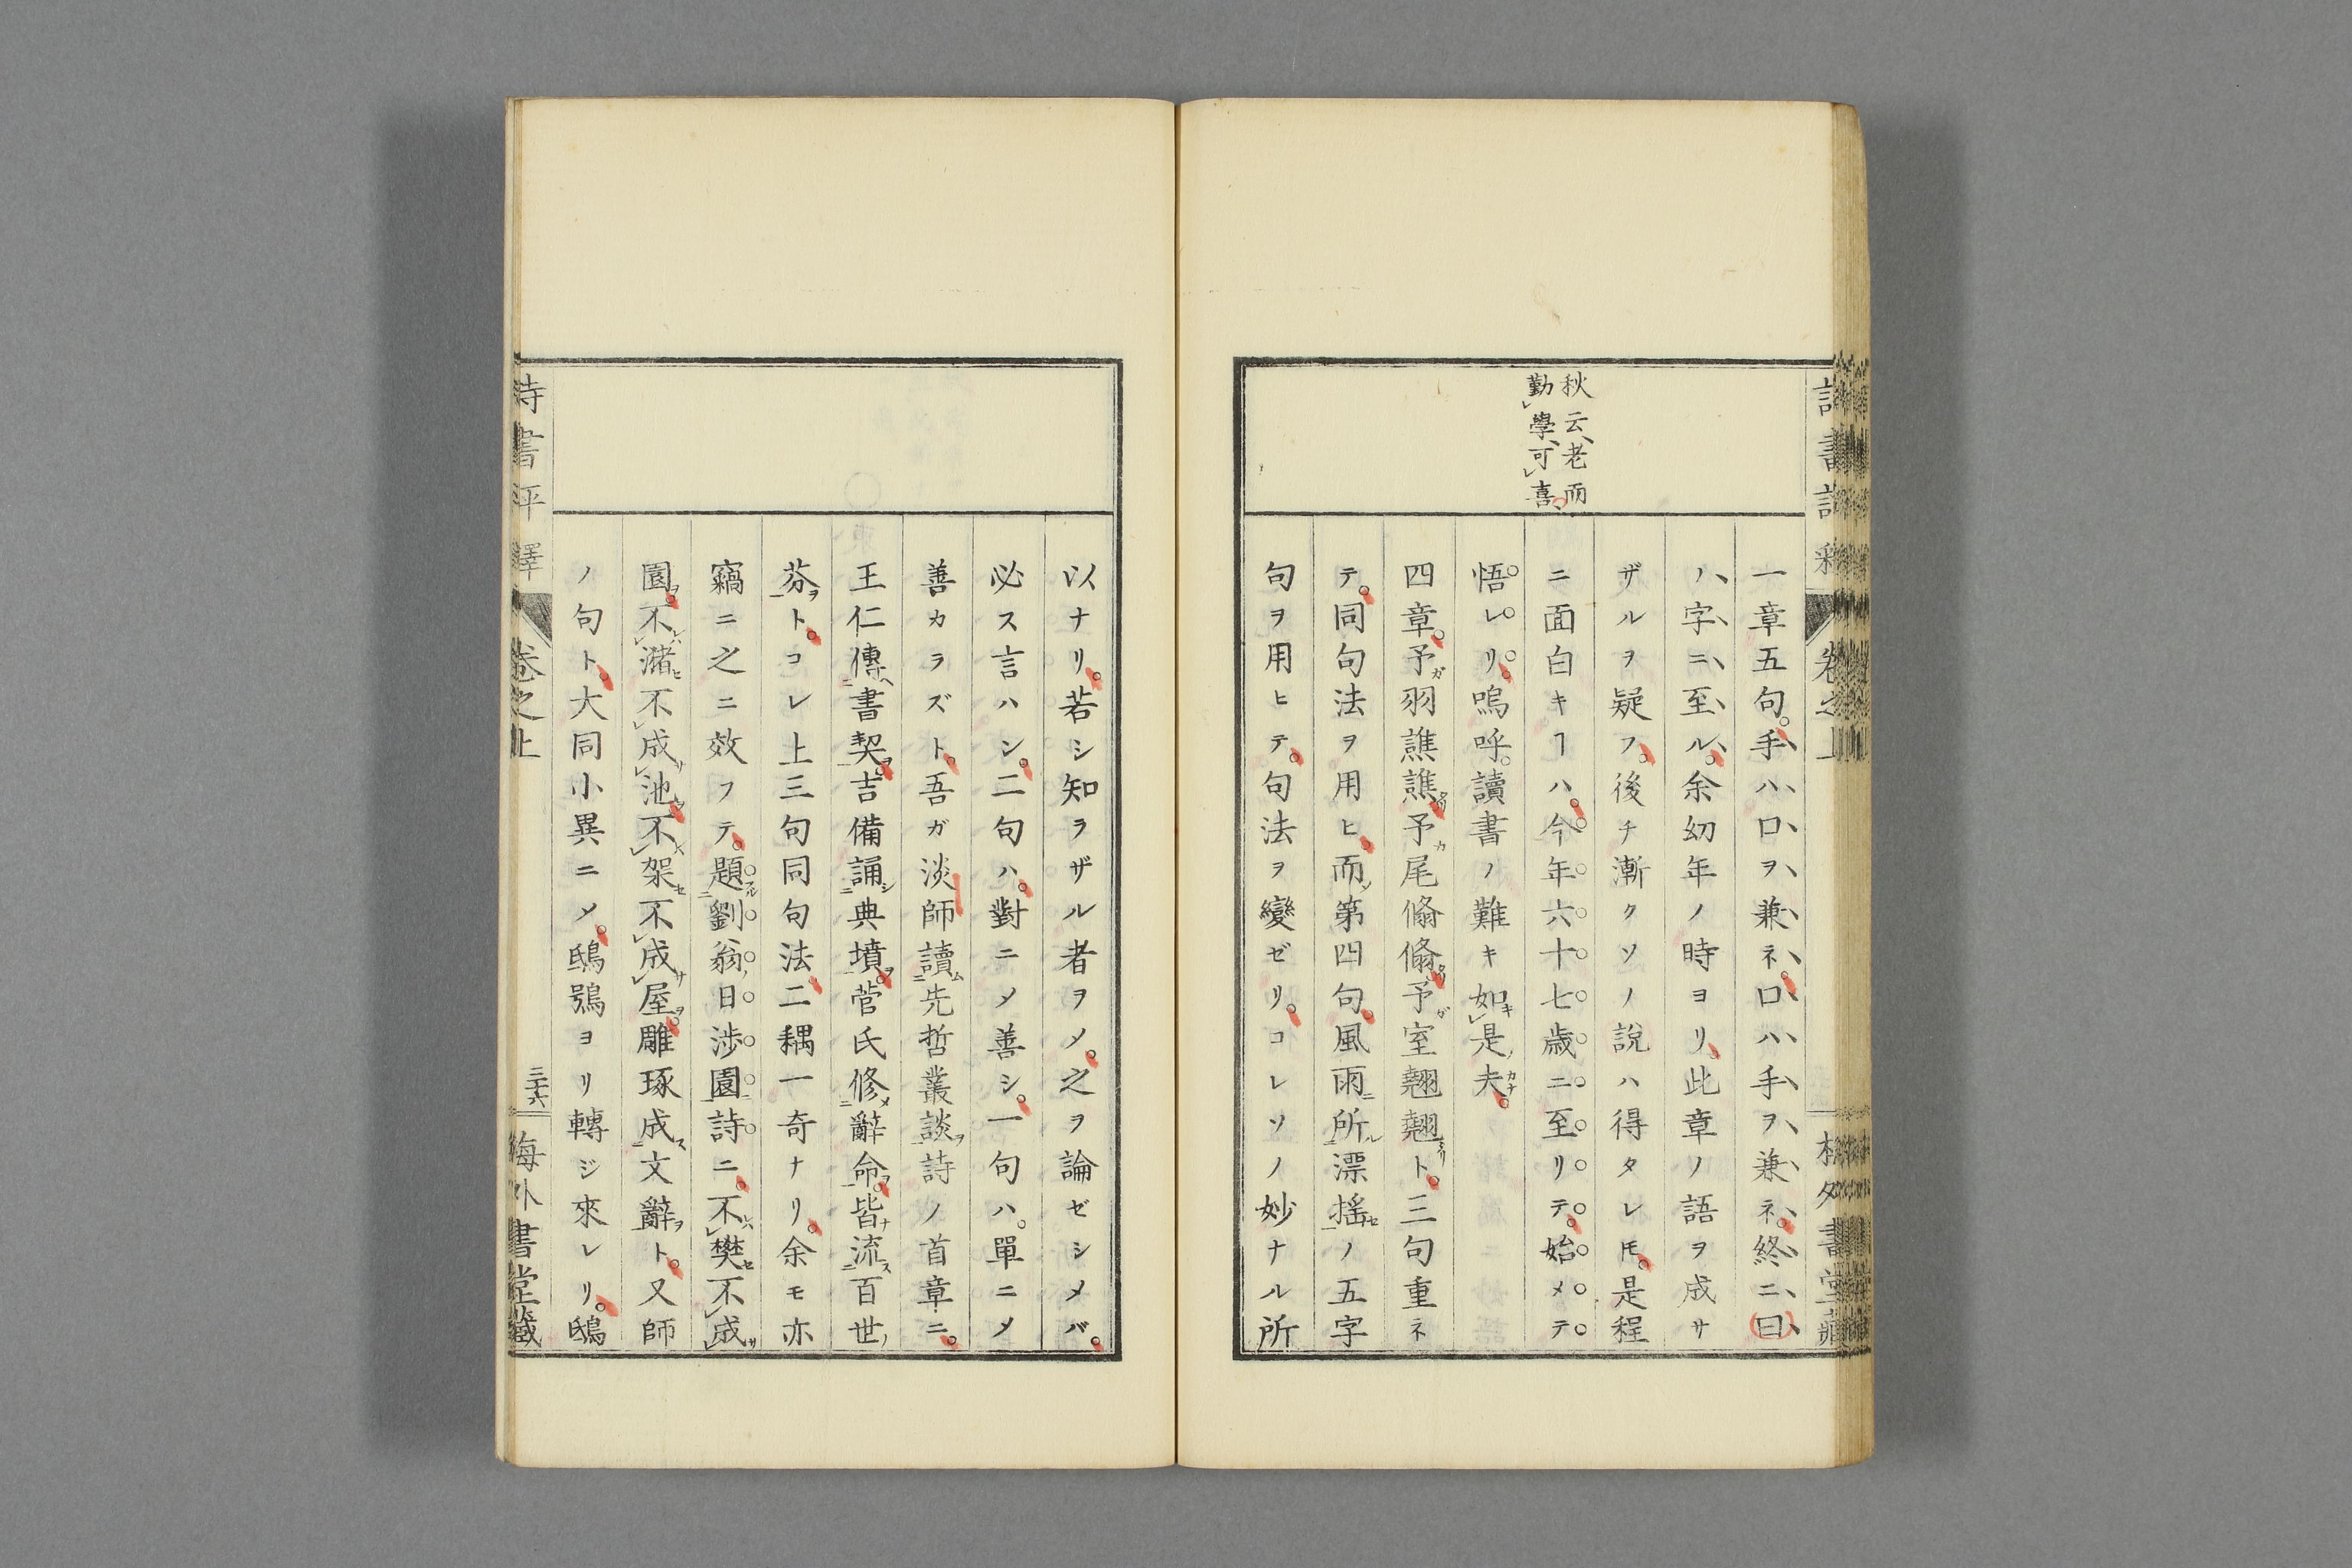 秋云老而
勤學可喜
一章五句。手ハ口ヲ兼ネ。口ハ手ヲ兼ネ。終ニ曰
ノ字ニ至ル。余幼年ノ時ヨリ。此章ノ語ヲ成サ
ザルヲ疑フ。後チ漸クソノ說ハ得タレ𪜈。是程
ニ面白キヿハ。今年六十七歳ニ至リテ。始メテ
悟レリ。嗚呼。讀書ノ難キ如キ是ノ夫カナ。
四章。予ガ羽譙譙タリ。予カ尾翛翛タリ。予ガ室翹翹タリト。三句重ネ
テ。同句法ヲ用ヒ。而ノ第四句。風雨ニ所ル漂搖セノ五字
句ヲ用ヒテ。句法ヲ變ゼリ。コレソノ妙ナル所
以ナリ。若シ知ラザル者ヲメ。之ヲ論ゼシメバ。
必ス言ハシ。二句ハ。對ニメ善シ。一句ハ。單ニメ
善カラズト。吾ガ淡師讀ム先哲叢談ヲ詩ノ首章ニ。
王仁傳ヘ書契ヲ。吉備誦シ典墳ヲ。菅氏修メ辭命ヲ。皆ナ流ス百世ノ
芬ヲト。コレ上三句同句法。二耦一奇ナリ。余モ亦
竊ニ之ニ效フテ。題スル劉翁ノ日涉園詩ニ。不レハ樊セ不成サ
園ヲ。不レハ瀦セ不成サ池ヲ。不レハ架セ不成サ屋ヲ。雕琢成ス文辭ヲト。又師
ノ句ト。大同小異ニメ。鴟鴞ヨリ轉ジ來レリ。鴟
卷之上
三十六
梅外書堂藏